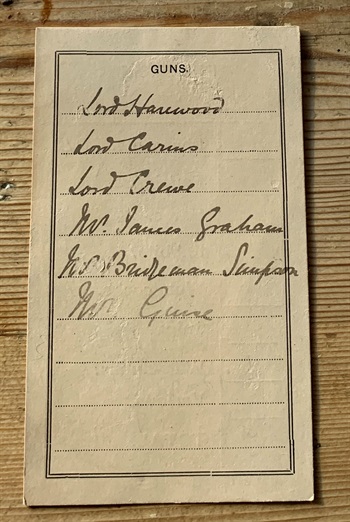 GUNS.
Lord Harewood
Lord Cairns
Lord Crewe
Mr. James Graham
Mr. Bridgeman Simpson
Mr. Guise